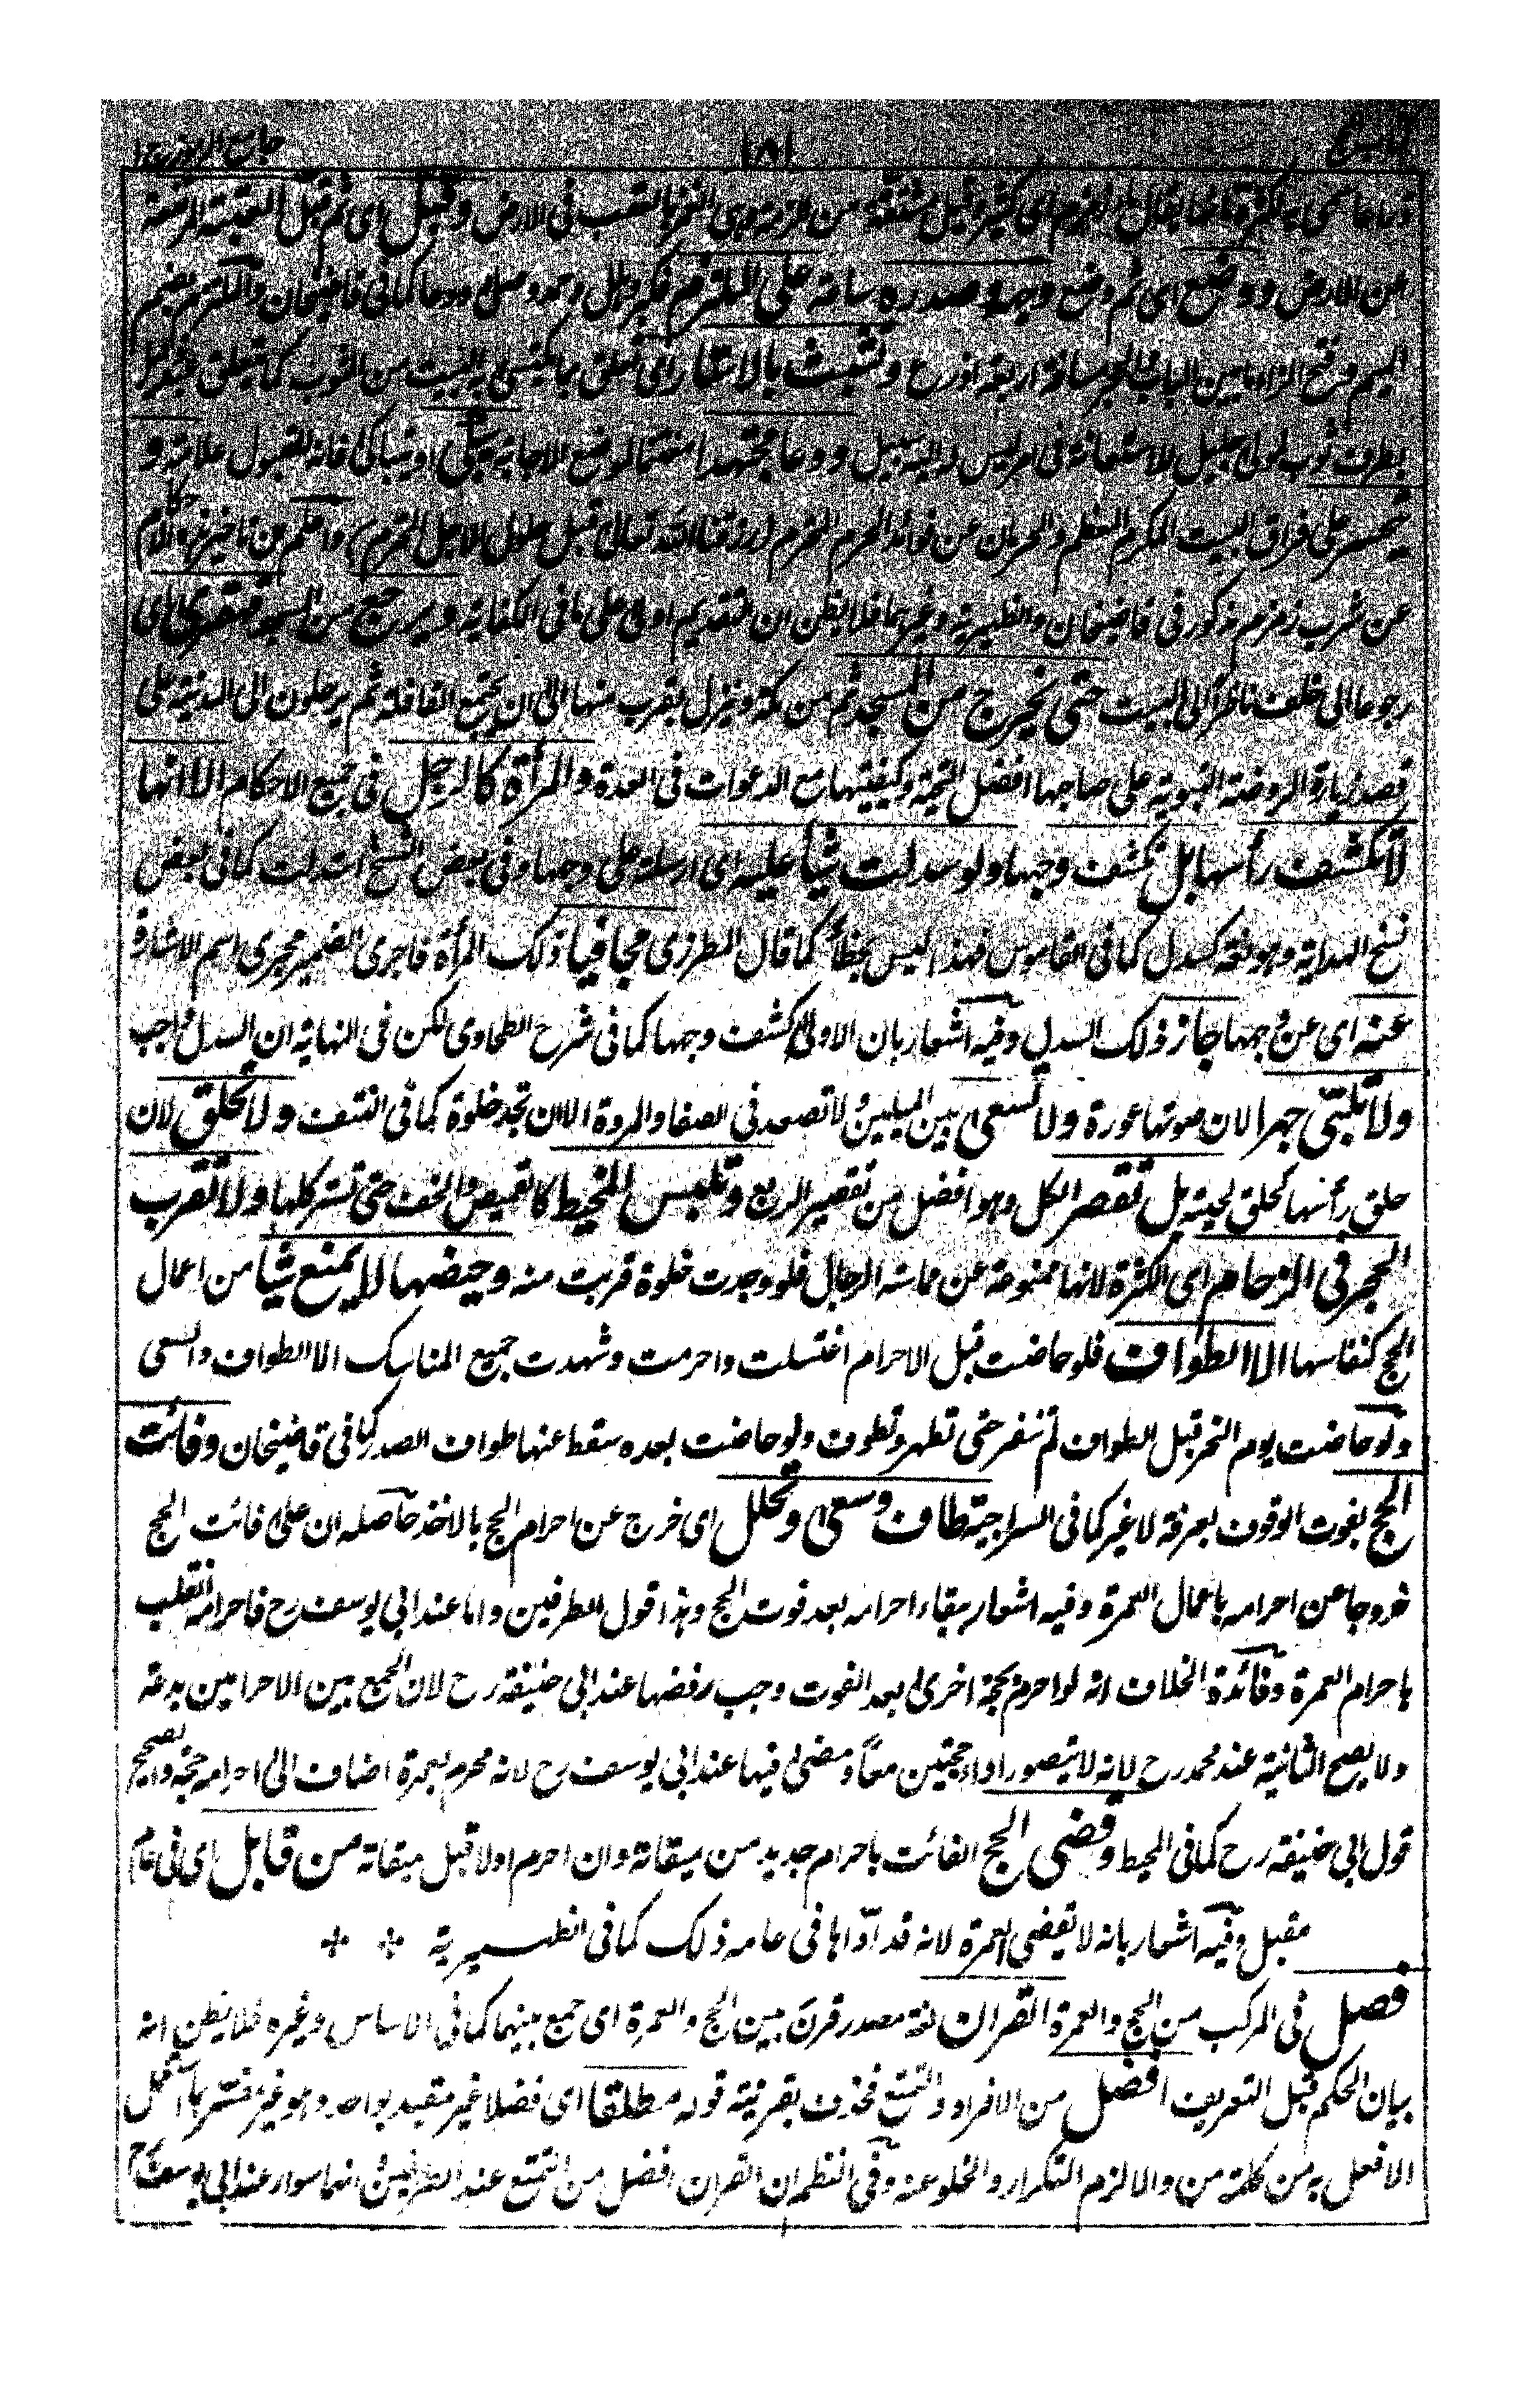 كتاب الحج ١٨١ جامع الرموز ج١
ذراعا سمى به لكثرة مائها يقال ماء زمزم اى كثير وقيل مشتقة من وهى الغمز بالعقب فى الارض وقبل اى ثم قبل العتبة المرتفعة
من الارض ووضع اى ثم وضع وجهه وصدره ساعة على الملتزم فكبر وهلل وحمد وصلى ودعا كما فى قاضيخان والملتزم بضم
الميم وفتح الزاء ما بين الباب والحجر مسافة اربعة اذرع وتشبث بالاستار اى تعلق بما يكتسى به البيت من الثوب كما يتعلق عبد ذليل
بطرف ثوب لمولى جليل للاستغاثة فى امر ليس له اليه سبيل ودعا مجتهدا مغتنما لموضع الاجابة ويبكى او يتباكى فانه للقبول علامة و
يتحسر على فراق البيت المكرم المعظم والحرمان عن فوائد الحرم المحرم (رزقنا الله تعالى قبل حلول الاجل المحرم) واعلم من تاخير هذه الاحكام
عن شرب زمزم مذكور فى قاضيخان والظهيرية وغيرهما فلا يظن ان التقديم اولى على ما فى الكفاية ويرجع من المسجد قهقرى اى
رجوعا الى خلف ناظرا الى البيت حتى يخرج من المسجد ثم من مكة وينزل بقرب منها الى ان يجتمع القافلة ثم يرحلون الى المدينة على
قصد زيارة الروضة النبوية على صاحبها افضل التحية وكيفيتها مع الدعوات فى العدة والمرأة كالرجل فى جميع الاحكام الا انها
لا تكشف رأسها بل تكشف وجهها ولو سدلت شيأ عليه اى ارسلته على وجهها وفى بعض النسخ اسدلت كما فى بعض
نسخ الهداية وهو لغة كسدل كما فى القاموس فهذا ليس بخطأ كما قال المطرزى مجافيا ذلك المرأة فاجرى الضمير مجرى اسم الاشارة
عنه اى عن وجهها جاز ذلك السدل وفيه اشعار بان الاولى كشف وجهها كما فى شرح الطحاوى لكن فى النهاية ان السدل واجب
ولا تلبى جهرا لان صوتها عورة ولا تسعى بين الميلين ولا تصعد فى الصفا والمروة الا ان تجد خلوة كما فى النتف ولا تحلق لان
حلق رأسها كحلق لحيته بل تقصر الكل وهو افضل من تقصير الربع وتلبس المخيط كالقميص والخف حتى تستر كلها ولا تقرب
الحجر فى الزحام اى الكثرة لانها ممنوعة عن مماسة الرجال فلو وجدت خلوة قربت منه وحيضها لا يمنع شيأ من اعمال
الحج كنفاسها الا الطواف فلو حاضت قبل الاحرام اغتسلت واحرمت وشهدت جميع المناسك الا الطواف والسعى
ولو حاضت يوم النحر قبل الطواف لم تنفر حتى تطهر وتطوف ولو حاضت بعده سقط عنها طواف الصدر كما فى قاضيخان وفائت
الحج بفوت الوقوف بعرفة لا غير كما فى السراجية طاف وسعى وتحلل اى خرج عن احرام الحج بالاخذ حاصله ان على فائت الحج
خروجا عن احرامه باعمال العمرة وفيه اشعار ببقاء احرامه بعد فوت الحج وهذا قول الطرفين واما عند ابى يوسف رح فاحرامه انقلب
باحرام العمرة وفائدة الخلاف انه لو احرم بحجة اخرى بعد الفوت وجب رفضها عند ابى حنيفة رح لان الجمع بين الاحرامين بدعة
ولا يصح الثانية عند محمد رح لانه لا يتصور اداء حجتين معا ومضى فيها عند ابى يوسف رح لانه محرم بعمرة اضاف الى احرامه حجة والصحيح
قول ابى حنيفة رح كما فى المحيط وقضى الحج الفائت باحرام جديد من ميقاته وان احرم اولا قبل ميقاته من قابل اى فى عام
مقبل وفيه اشعار بانه لا تقضى العمرة لانه قد ادّاها فى عامه ذلك كما فى الظهيرية
فصل فى المركب من الحج والعمرة القران لغة مصدر قرن بين الحج والعمرة اى جمع بينهما كما فى الاساس وغيره فلا يظن انه
بيان الحكم قبل التعريف افضل من الافراد والتمتع فحذف بقرينة قوله مطلقا اى فضلا غير مقيد بواحد وهو غير مفسر بما استعمل
الافعل به من كلمة من والا لزم التكرار والخلو عنه وفى النظم ان القران افضل من التمتع عند الطرفين انهما سواء عند ابى يوسف رح